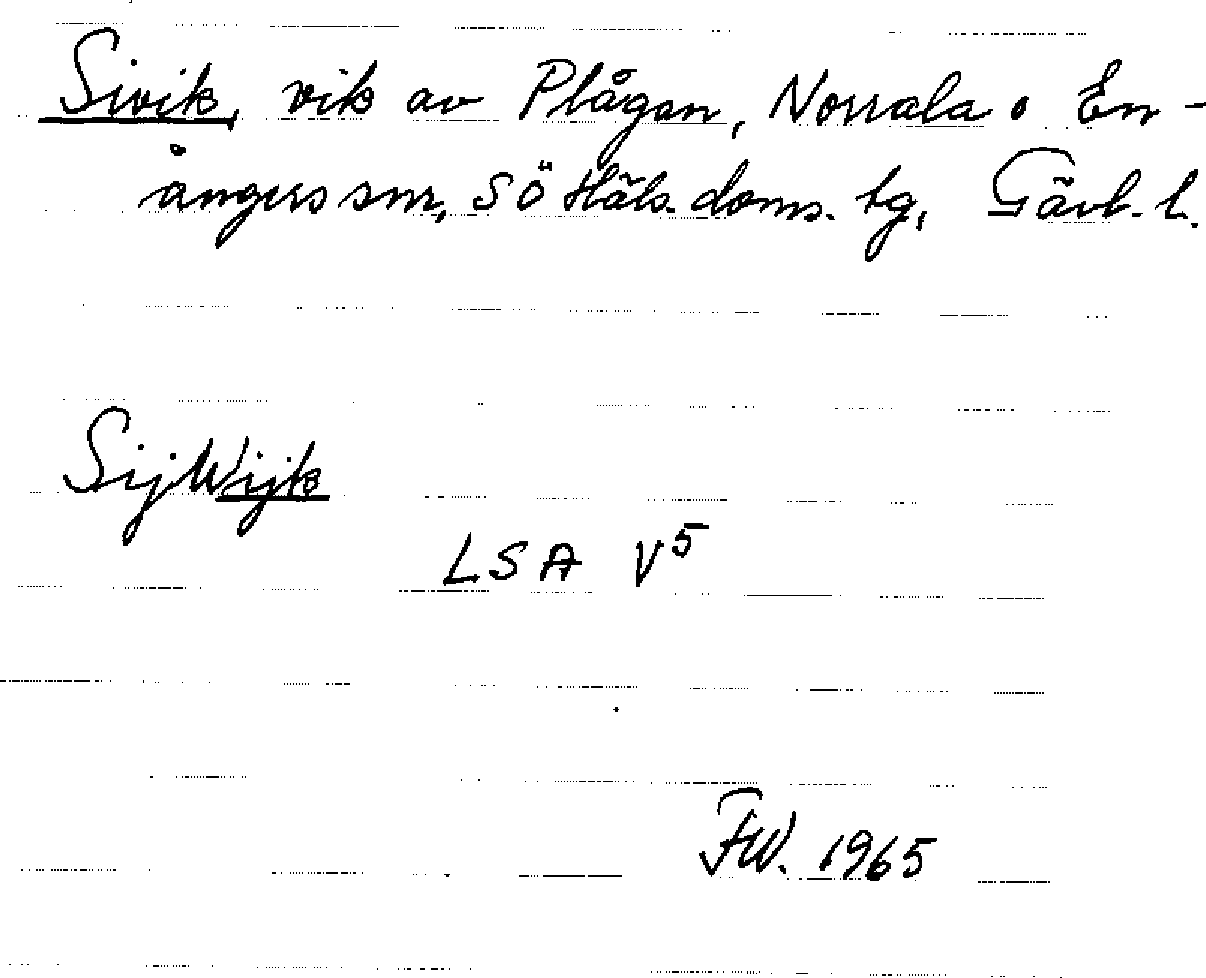 Sivik, vik av Plågan, Norrala o En-
ångers snr, Sö Häls. doms. tg, Gävl. l.
SijWijk
LSA V⁵
FW. 1965